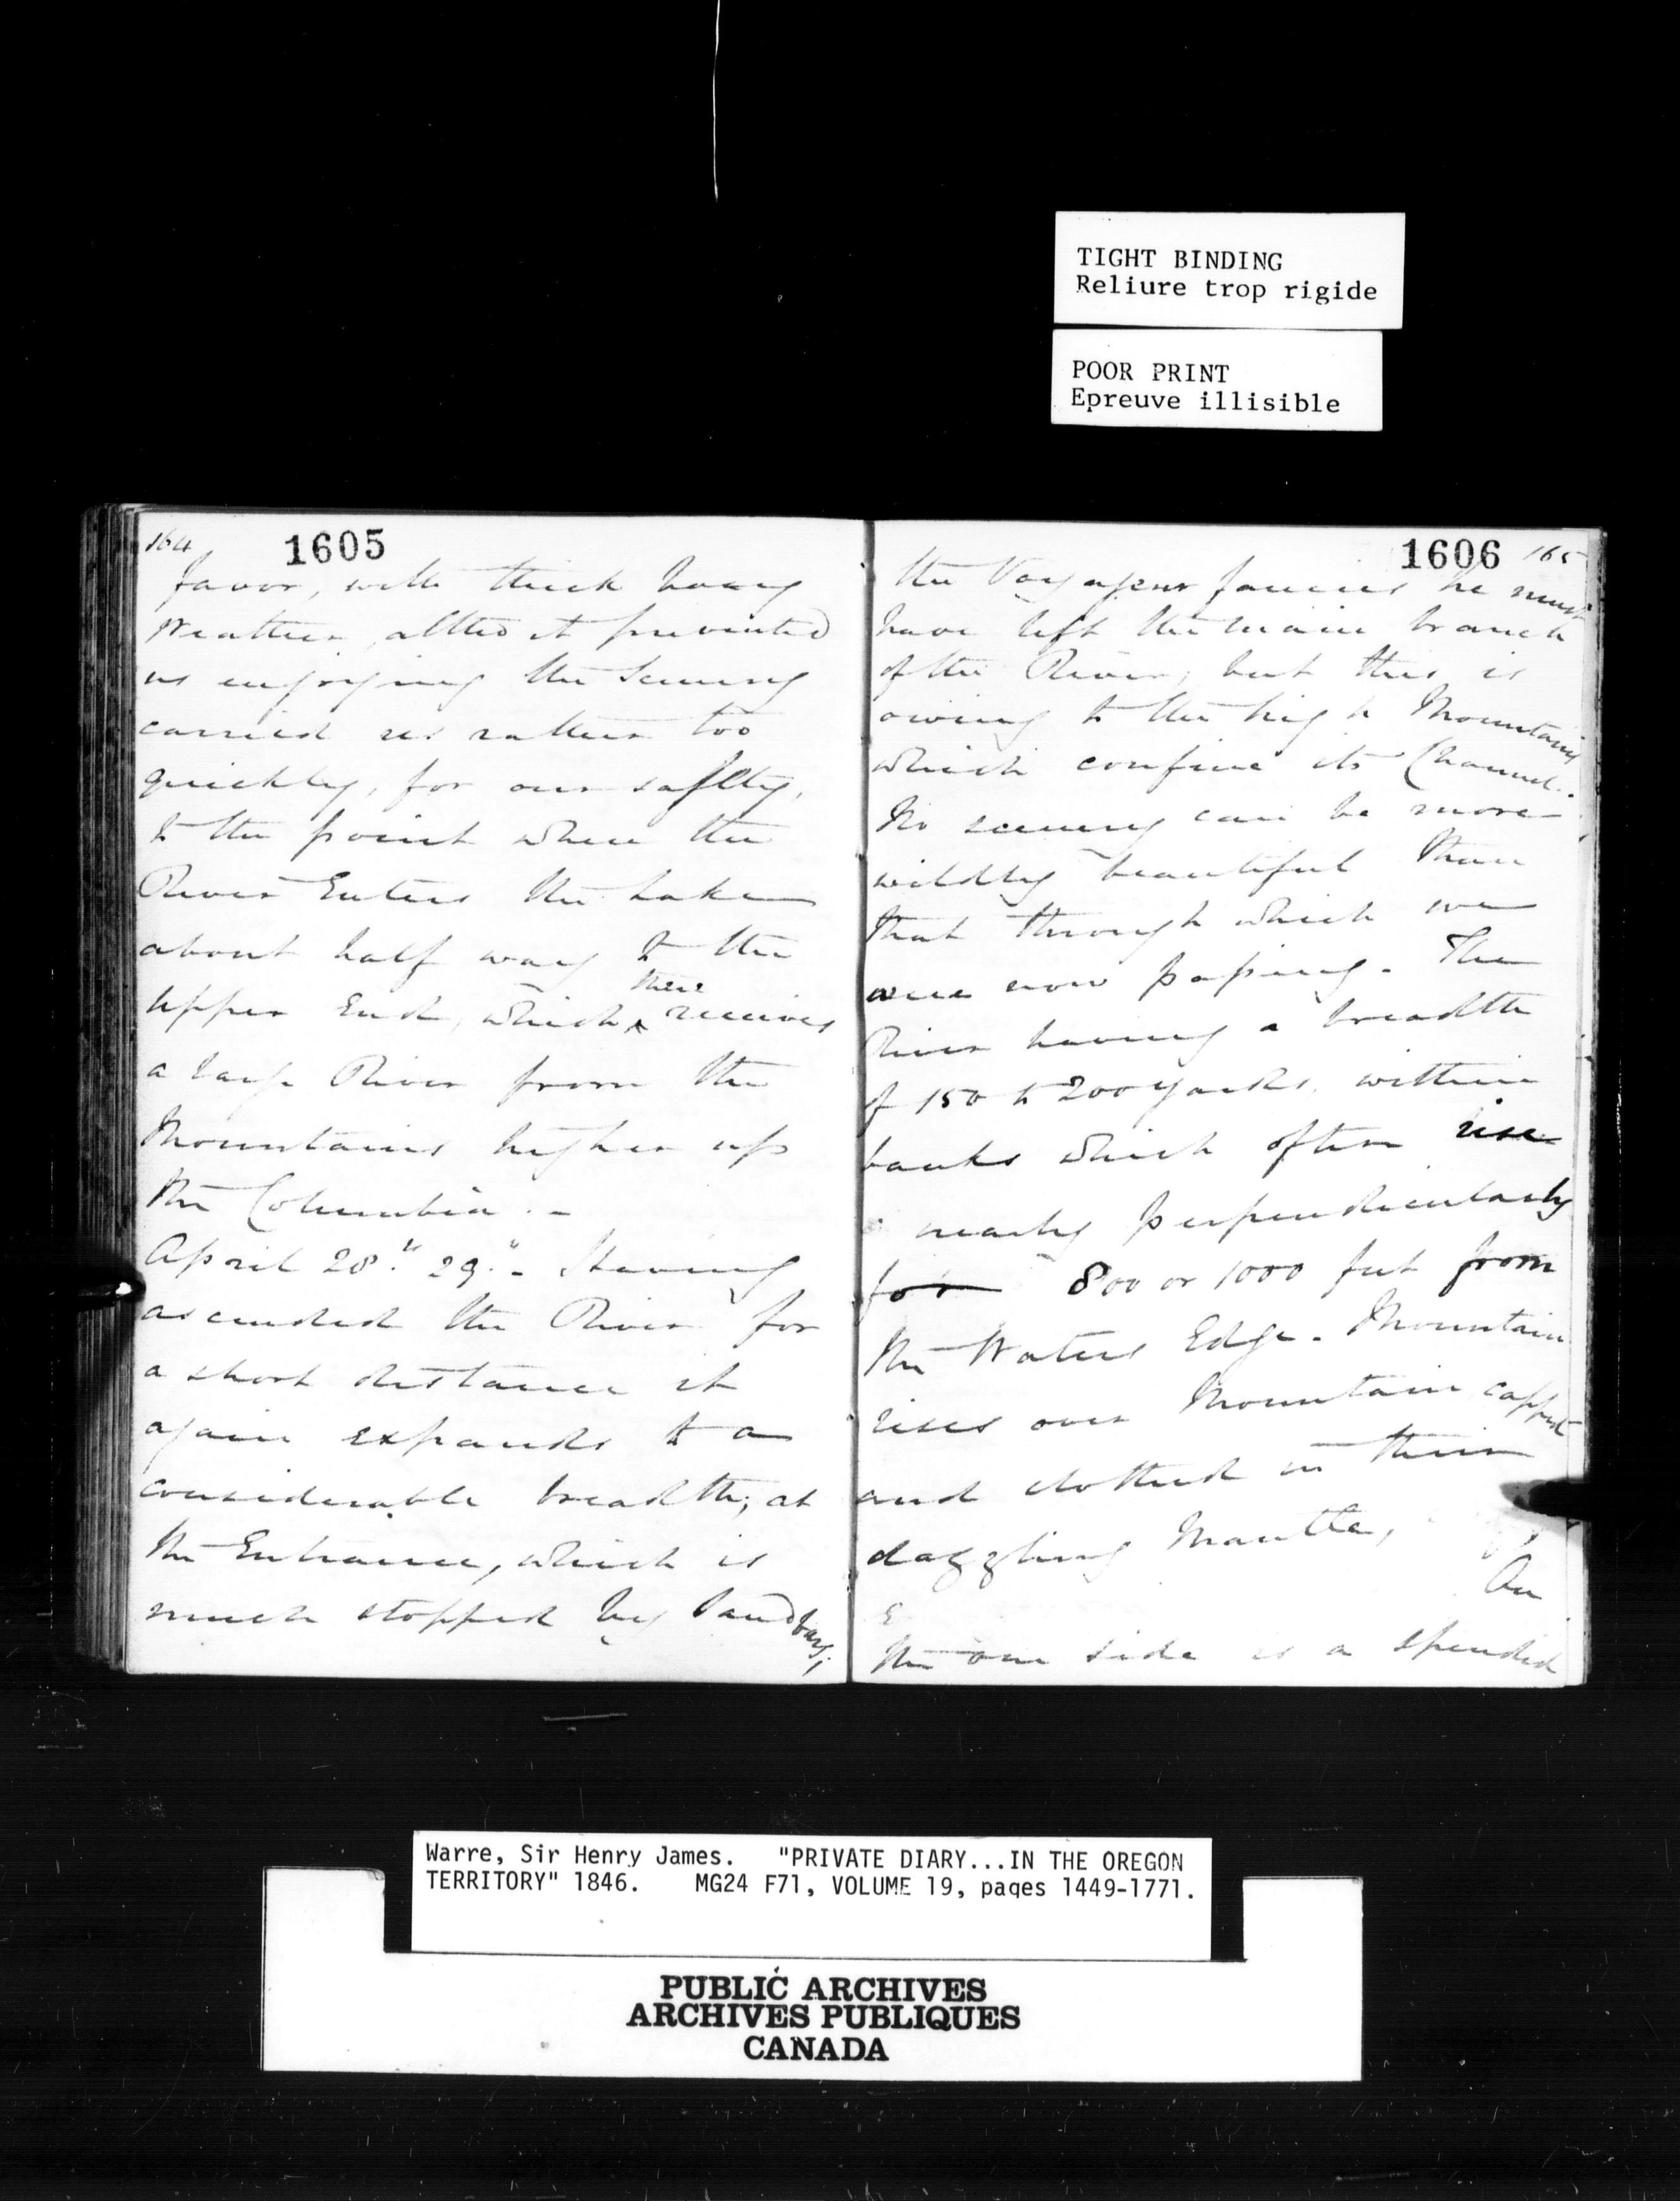 TIGHT BINDING
Reliure trop rigide
POOR PRINT
Epreuve illisible
164 1605
favor, with thick hazy
Weather, altho it prevented
us enjoying the Scenery
carried us rather too
quickly, for our saftty,
to the point where the
River Enters the Lake
about half way to the
upper End, which there receives
a large River from the
Mountains higher up
the Columbia. -
April 28th 29th - Having
ascended the River for
a short distance it
again expands to a
considerable breadth; at
the Entrance, which is
much stopped by Sandbars;
1606 165
the Voyageur fancies he must
have left the main branch
of the River, but this is
owing to the high Mountains
which confine its Channel.
No scenery can be more
wildly beautiful than
that through which we
were now passing - The
River having a breadth
of 150 to 200 yards, within
banks which often rise
nearly perpendicularly
for 800 or 1000 feet from
the Waters Edge - Mountain
rises over Mountain capped
and clothed in their
dazzling Mantle,
On
the one side is a spendid
Warre, Sir Henry James. "PRIVATE DIARY...IN THE OREGON
TERRITORY" 1846. MG24 F71, VOLUME 19, pages 1449-1771.
PUBLIC ARCHIVES
ARCHIVES PUBLIQUES
CANADA